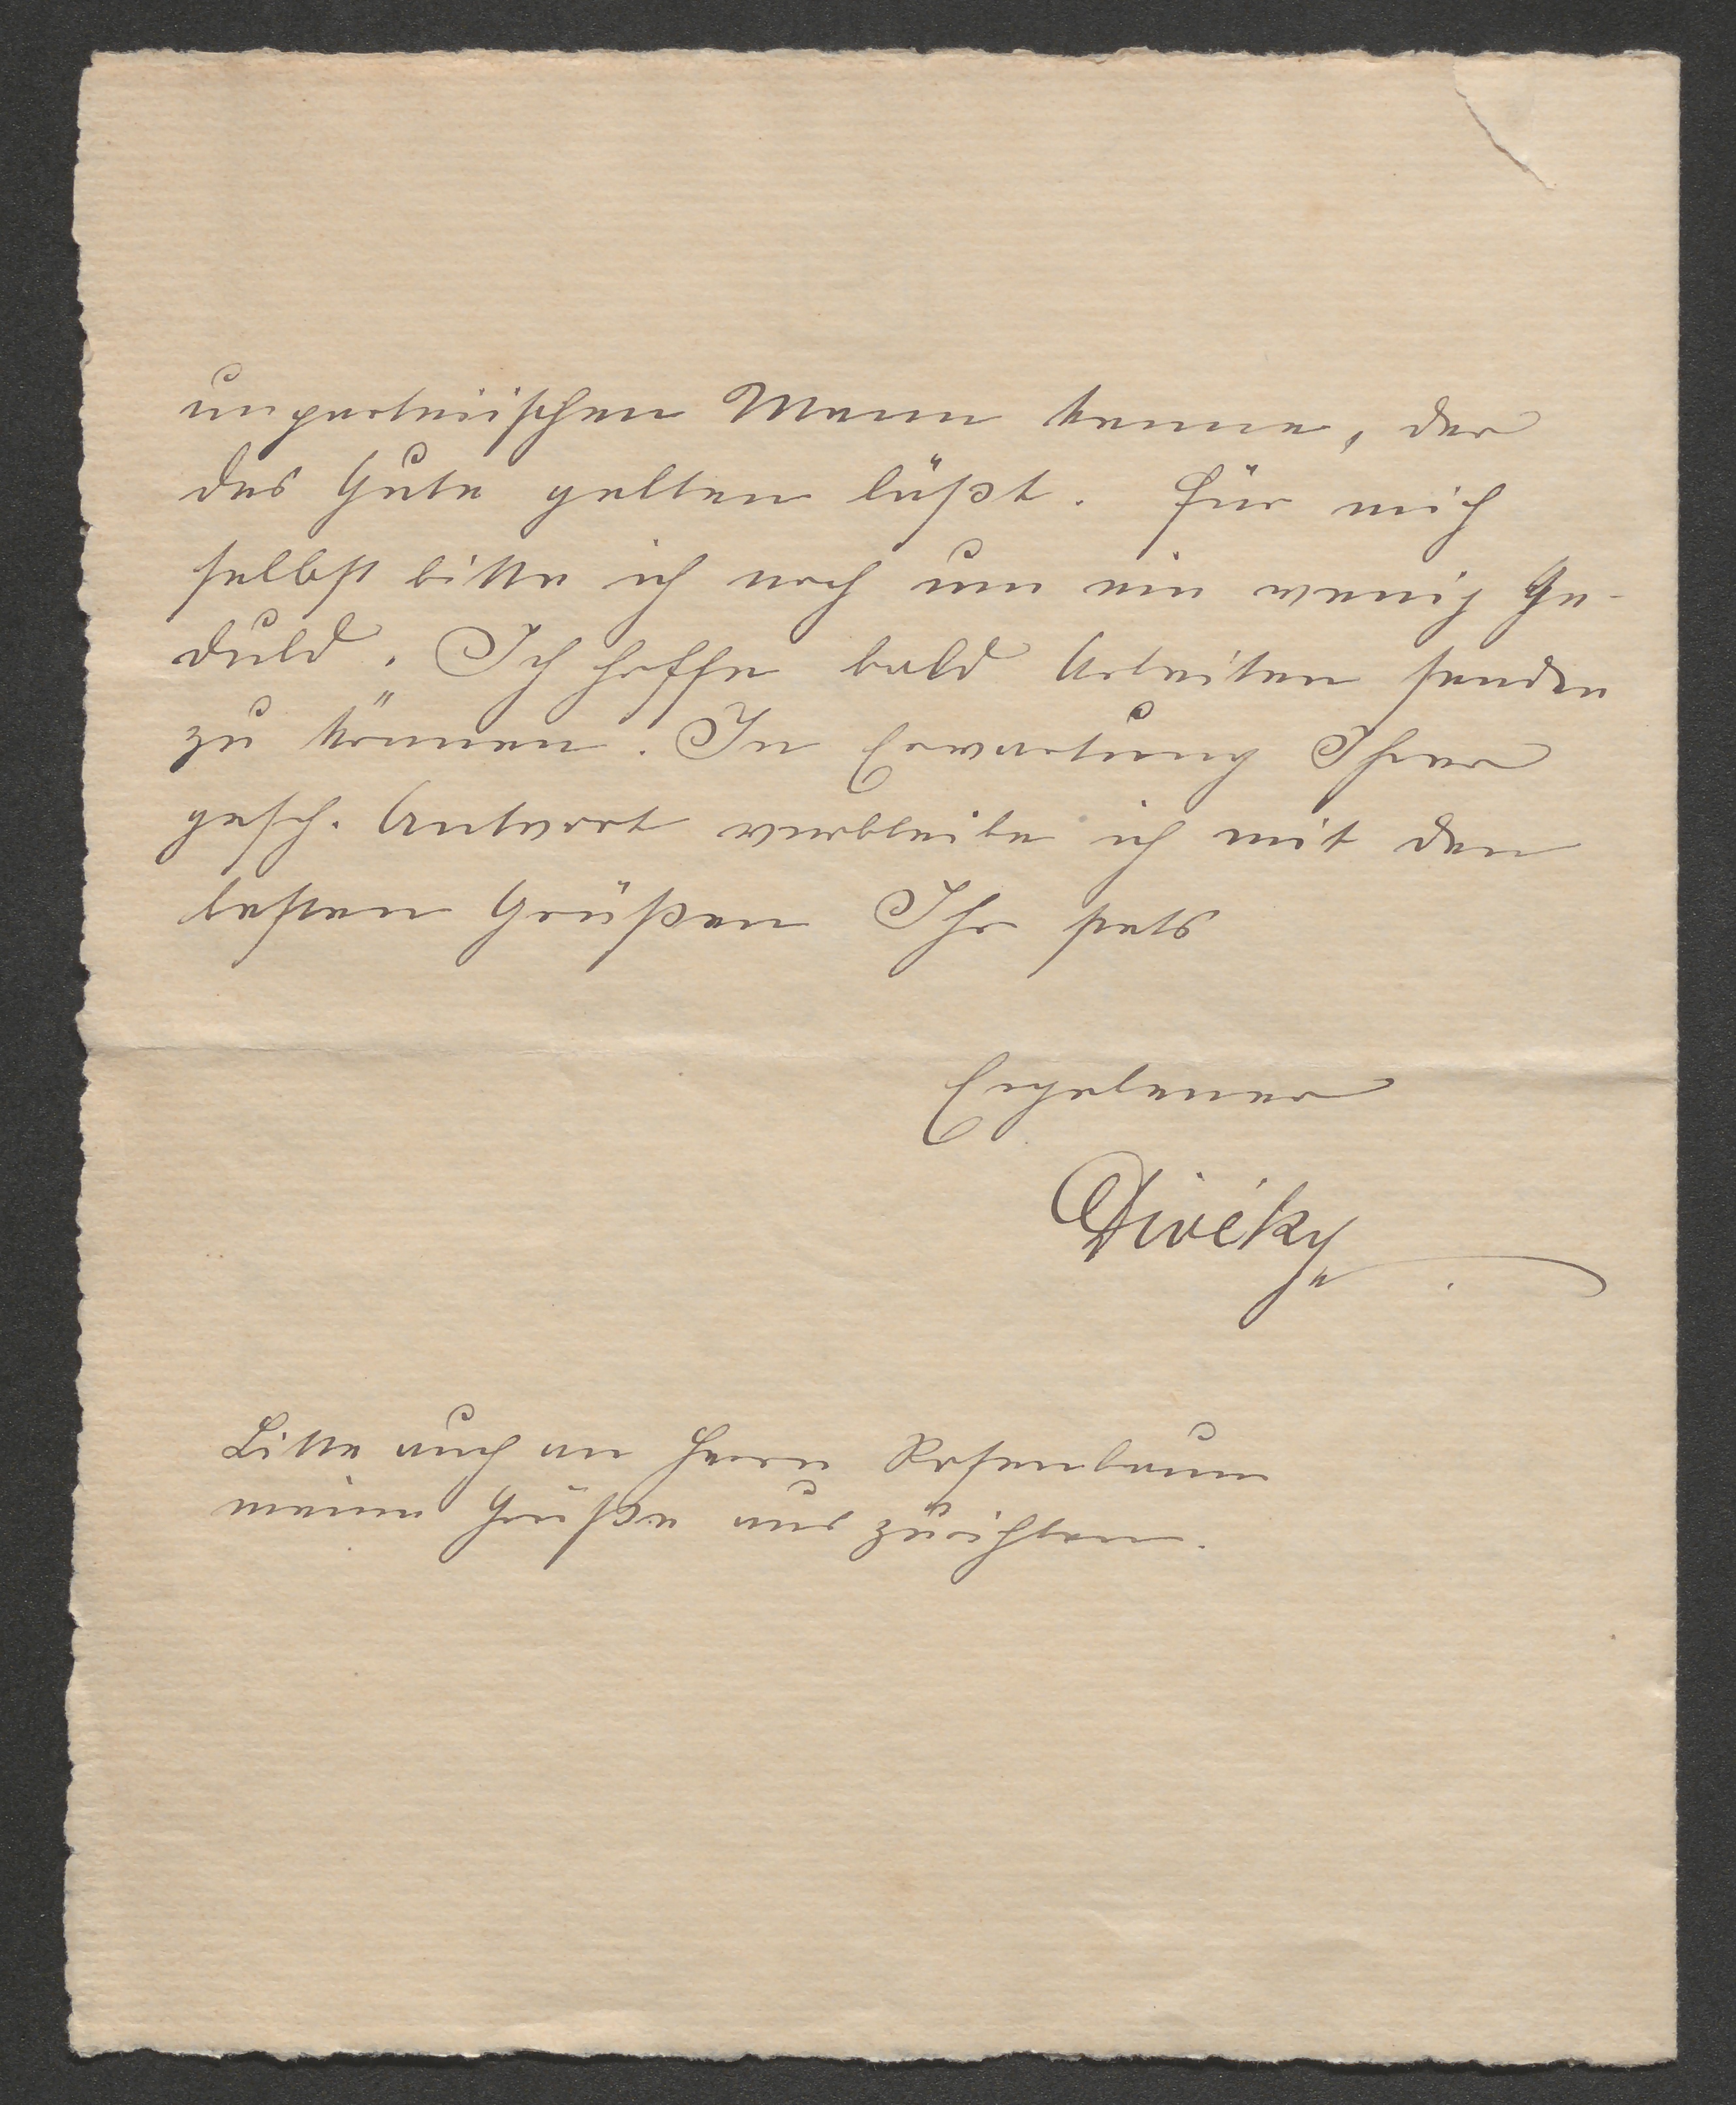 unparteiischen Mann kenne, der
das Gute gelten läßt. Für mich
selbst bitte ich noch um ein wenig Ge-
duld. Ich hoffe bald Arbeiten senden
zu können. In Erwartung Ihrer
gesch. Antwort verbleibe ich mit den
besten Grüßen Ihr stets
Ergebener
Divéky
Bitte auch an Herrn Rosenbaum
meine Grüße auszurichten.